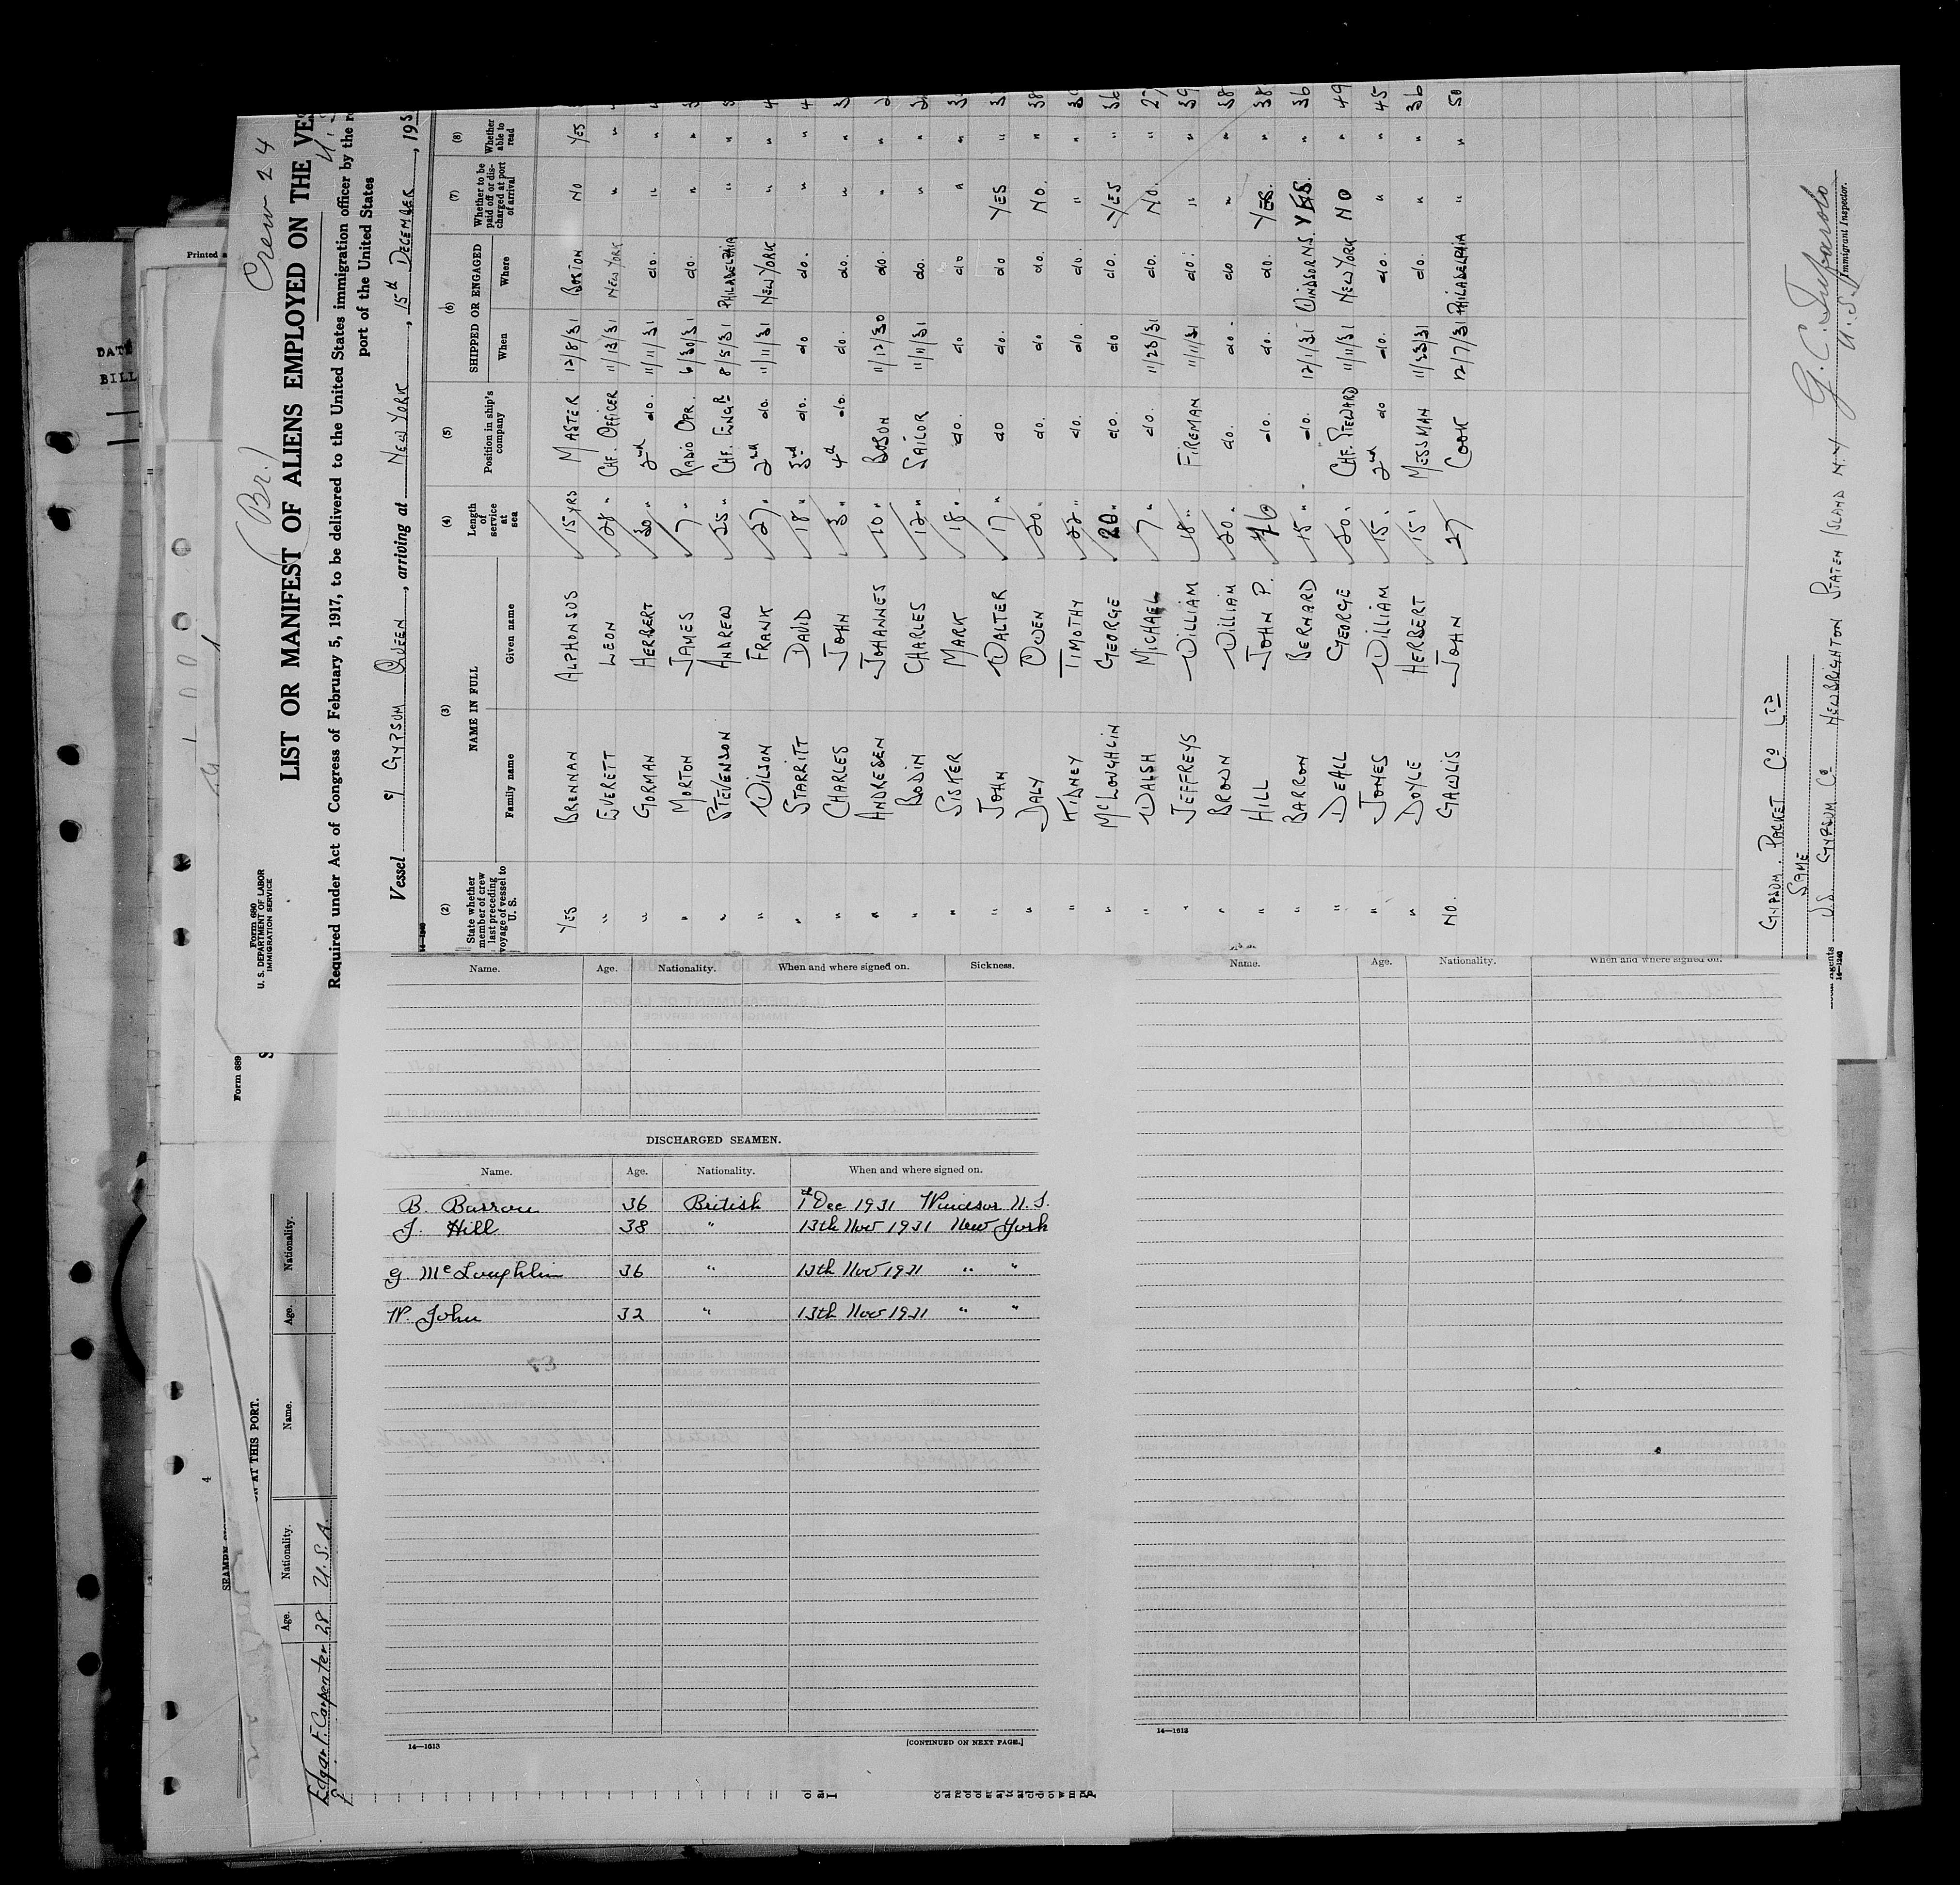 Crew 24
(Br.)
Form 690
U. S. DEPARTMENT OF LABOR
IMMIGRATION SERVICE
LIST OR MANIFEST OF ALIENS EMPLOYED ON THE VES
Required under Act of Congress of February 5, 1917, to be delivered to the United States immigration officer by the re
port of the United States
Vessel S/ GYPSUM QUEEN, arriving at NEW YORK, 15th DECEMBER, 193
(2) (3) (4) (5) (6) (7) (8)
State whether member of crew last preceding voyage of vessel to U. S. NAME IN FULL Length of service at sea Position in ship's company SHIPPED OR ENGAGED Whether to be paid off or discharged at port of arrival Whether able to read
Family name Given name When Where
YES BRENNAN ALPHONSOS 15 YRS MASTER 12/8/31 BOSTON NO YES
" EVERETT LEON 28 " CHF. OFFICER 11/13/31 NEW YORK " "
" GORMAN HERBERT 30 " 2nd do. 11/11/31 do. " "
" MORTON JAMES 7 " RADIO OPR. 6/30/31 do. " "
" STEVENSON ANDREW 25 " CHF. ENGR 8/5/31 PHILADELPHIA " "
" WILSON FRANK 27 " 2nd do. 11/11/31 NEW YORK " "
" STARRITT DAVID 18 " 3rd do. do do. " "
" CHARLES JOHN 3 " 4th do. do. do. " "
" ANDRESEN JOHANNES 10 " BOSON 11/12/30 do. " "
" BODIN CHARLES 12 " SAILOR 11/11/31 do. " "
" SISKER MARK 18 " do. do do " "
" JOHN WALTER 17 " do do. do YES "
" DALY OWEN 20 " do. do do. NO. "
" KIDNEY TIMOTHY 22 " do. do. do. " "
" McLOUGHLIN GEORGE 20 " do. do do. YES "
" WALSH MICHAEL 7 " do. 11/23/31 do. NO. "
" JEFFREYS WILLIAM 18 " FIREMAN 11/11/31 do. " " 39
" BROWN WILLIAM 20 " do. do. do " " 38
" HILL JOHN P. 16 do. do. do. YES. " 38
" BARRON BERNARD 15 " do. 12/1/31 WINDSOR N.S. YES. " 36
" DEALL GEORGE 20 " CHF. STEWARD 11/11/31 NEW YORK NO " 49
" JONES WILLIAM 15 " 2nd do do. do. " " 45
" DOYLE HERBERT 15 " MESSMAN 11/23/31 do. " " 36
NO. GAWLIS JOHN 27 COOK 12/7/31 PHILADELPHIA " " 50
GYPSUM PACKET Co LTD
SAME
U.S. GYPSUM Co NEW BRIGHTON STATEN ISLAND N.Y
U. S. Immigrant Inspector.
14—1240
Name. Age. Nationality. When and where signed on. Sickness.
DISCHARGED SEAMEN.
Name. Age. Nationality. When and where signed on.
B. Barron 36 British 1st Dec 1931 Windsor N.S.
J. Hill 38 " 13th Nov 1931 New York
G McLoughlin 36 " 13th Nov 1931 " "
W. John 32 " 13th Nov 1931 " "
14—1613 [CONTINUED ON NEXT PAGE.]
Name. Age. Nationality. When and where signed on.
14—1613
Form 689
Printed
DATE
BILL
AT THIS PORT.
Name. Age. Nationality.
Age. Nationality.
Edgar F. Carpenter 28 U.S.A.
4